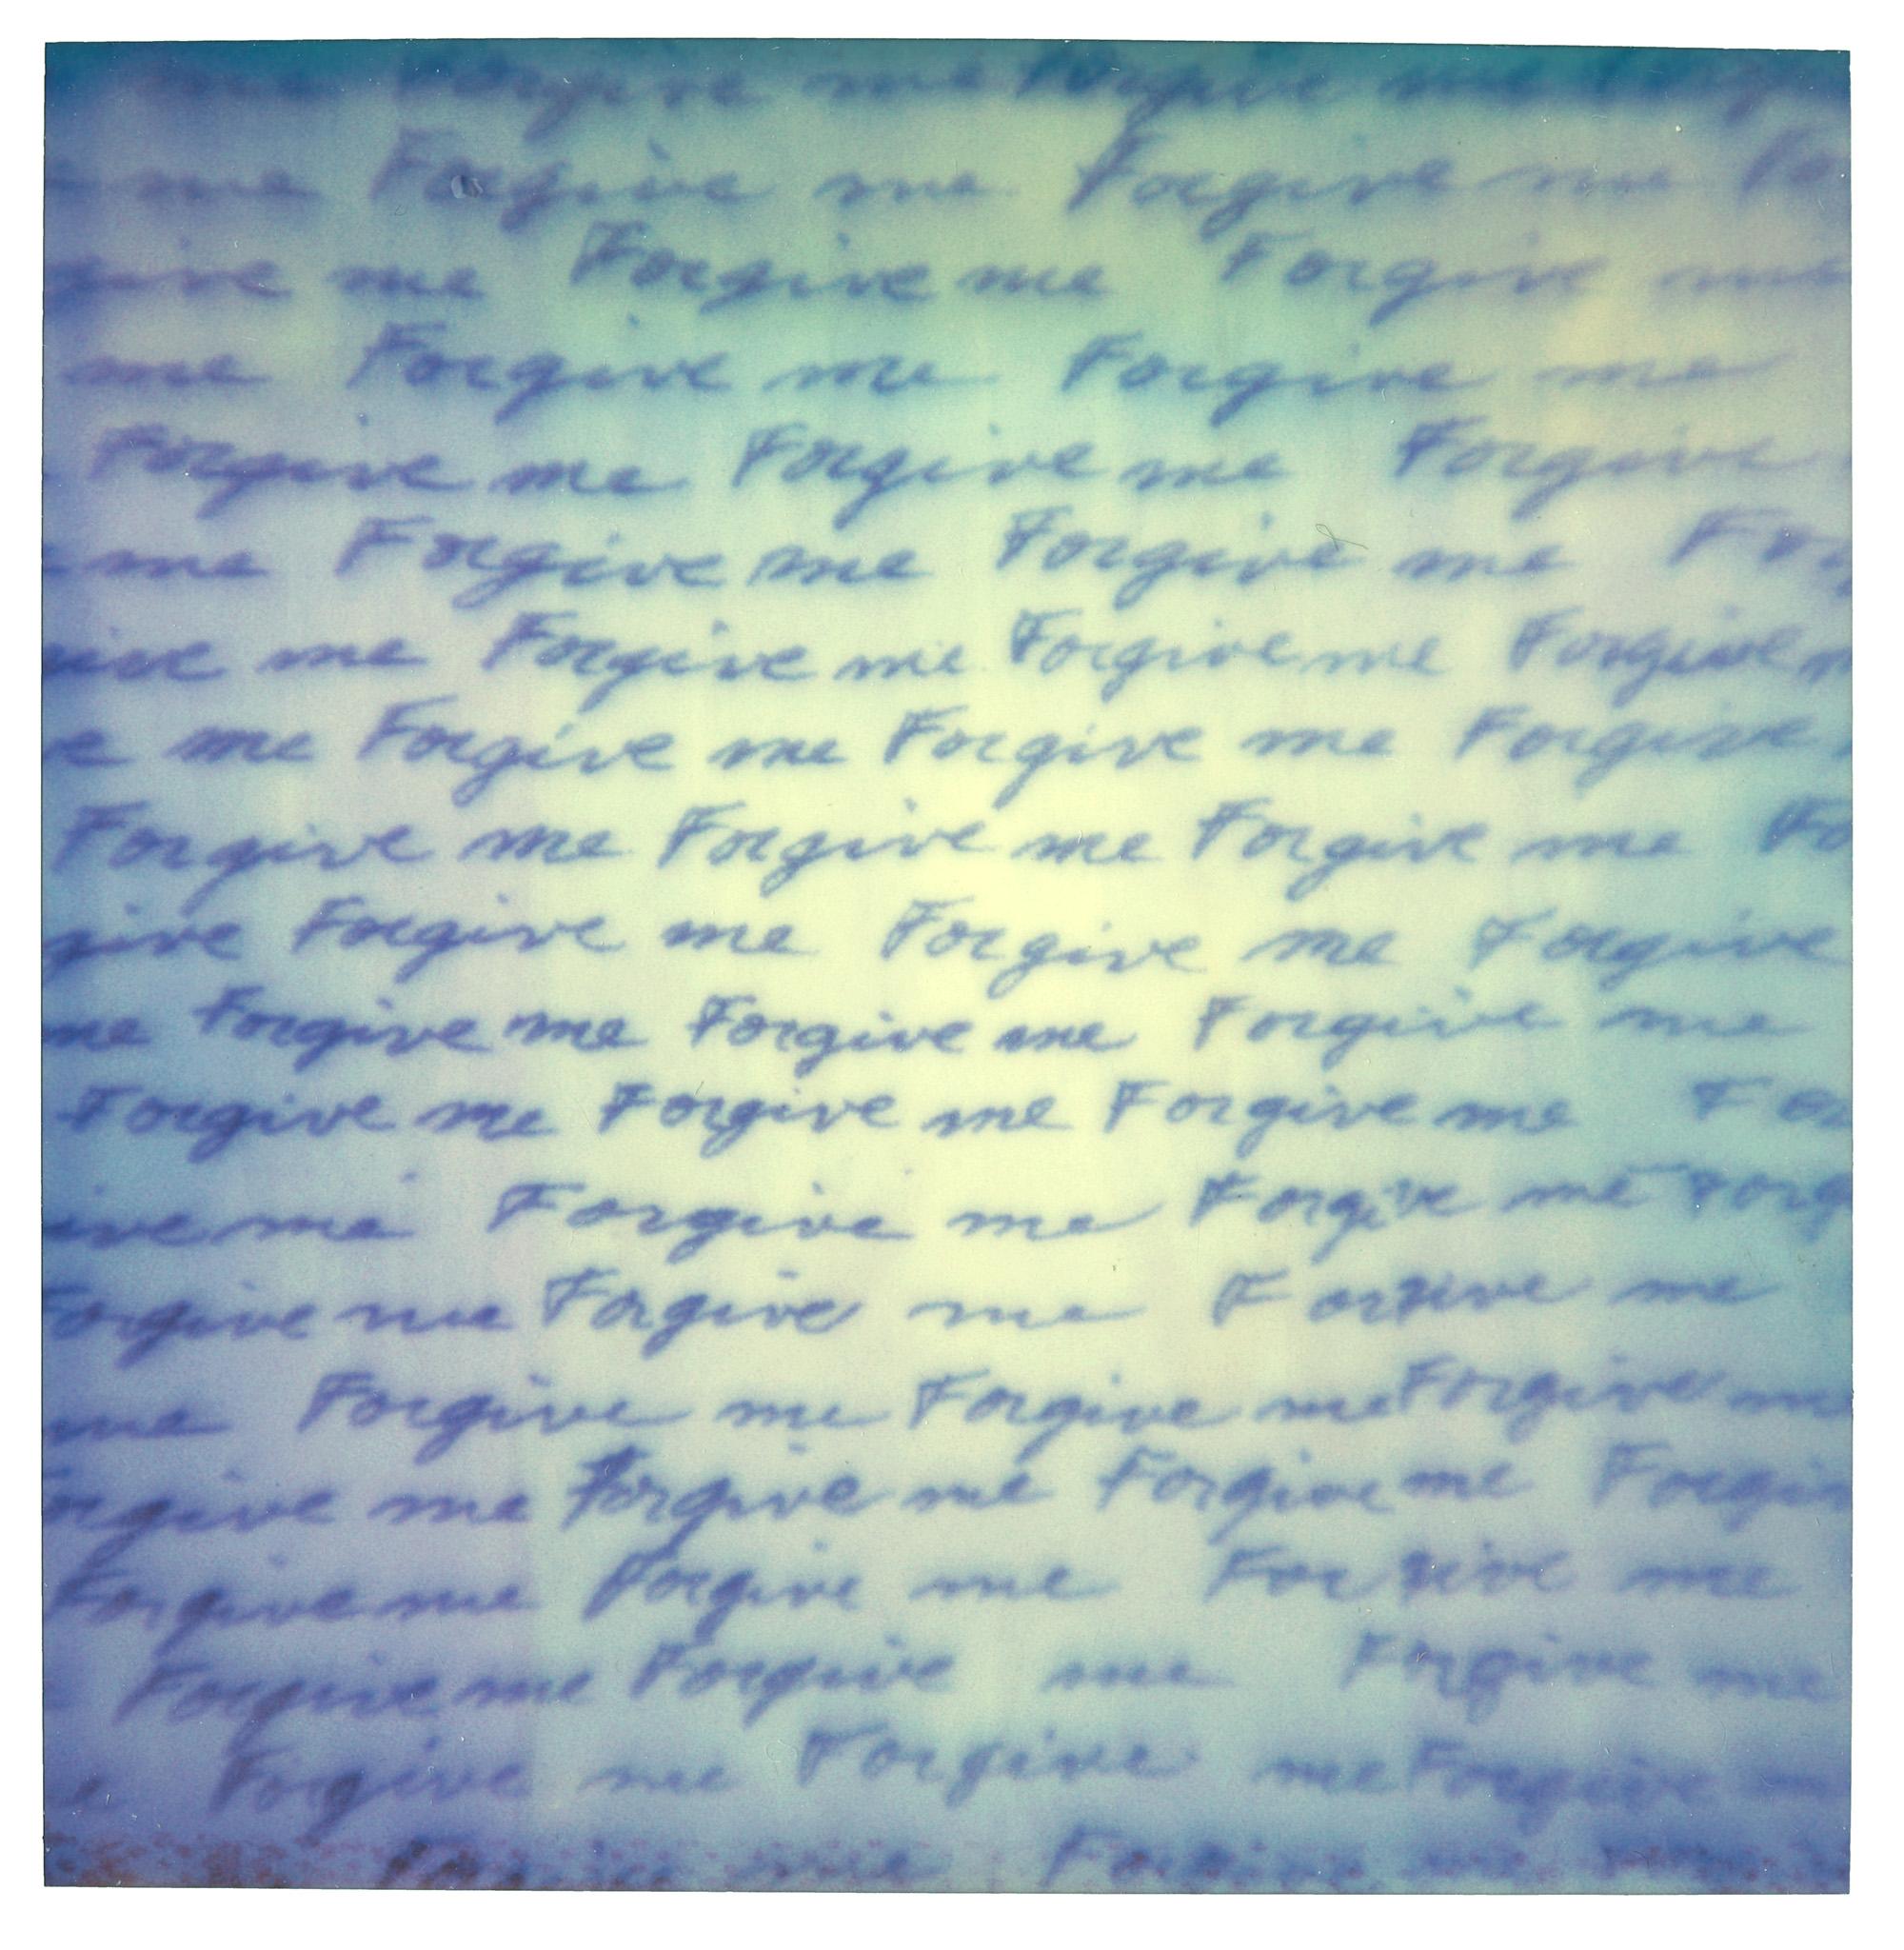 Forgive me Forgive me
me Forgive me Forgive me Fo
give me Forgive me Forgive me
me Forgive me Forgive me
Forgive me Forgive me Forgive
me Forgive me Forgive me For
ive me Forgive me Forgive me Forgive m
e me Forgive me Forgive me Forgive
Forgive me Forgive me Forgive me Fo
give Forgive me Forgive me Forgive
me Forgive me Forgive me Forgive me
Forgive me Forgive me Forgive me For
ive me Forgive me Forgive me Forg
Forgive me Forgive me Forgive me
me Forgive me Forgive me Forgive me
orgive me Forgive me Forgive me Forgiv
Forgive me Forgive me Forgive me
Forgive me Forgive me Forgive me
Forgive me Forgive me Forgive
me Forgive me